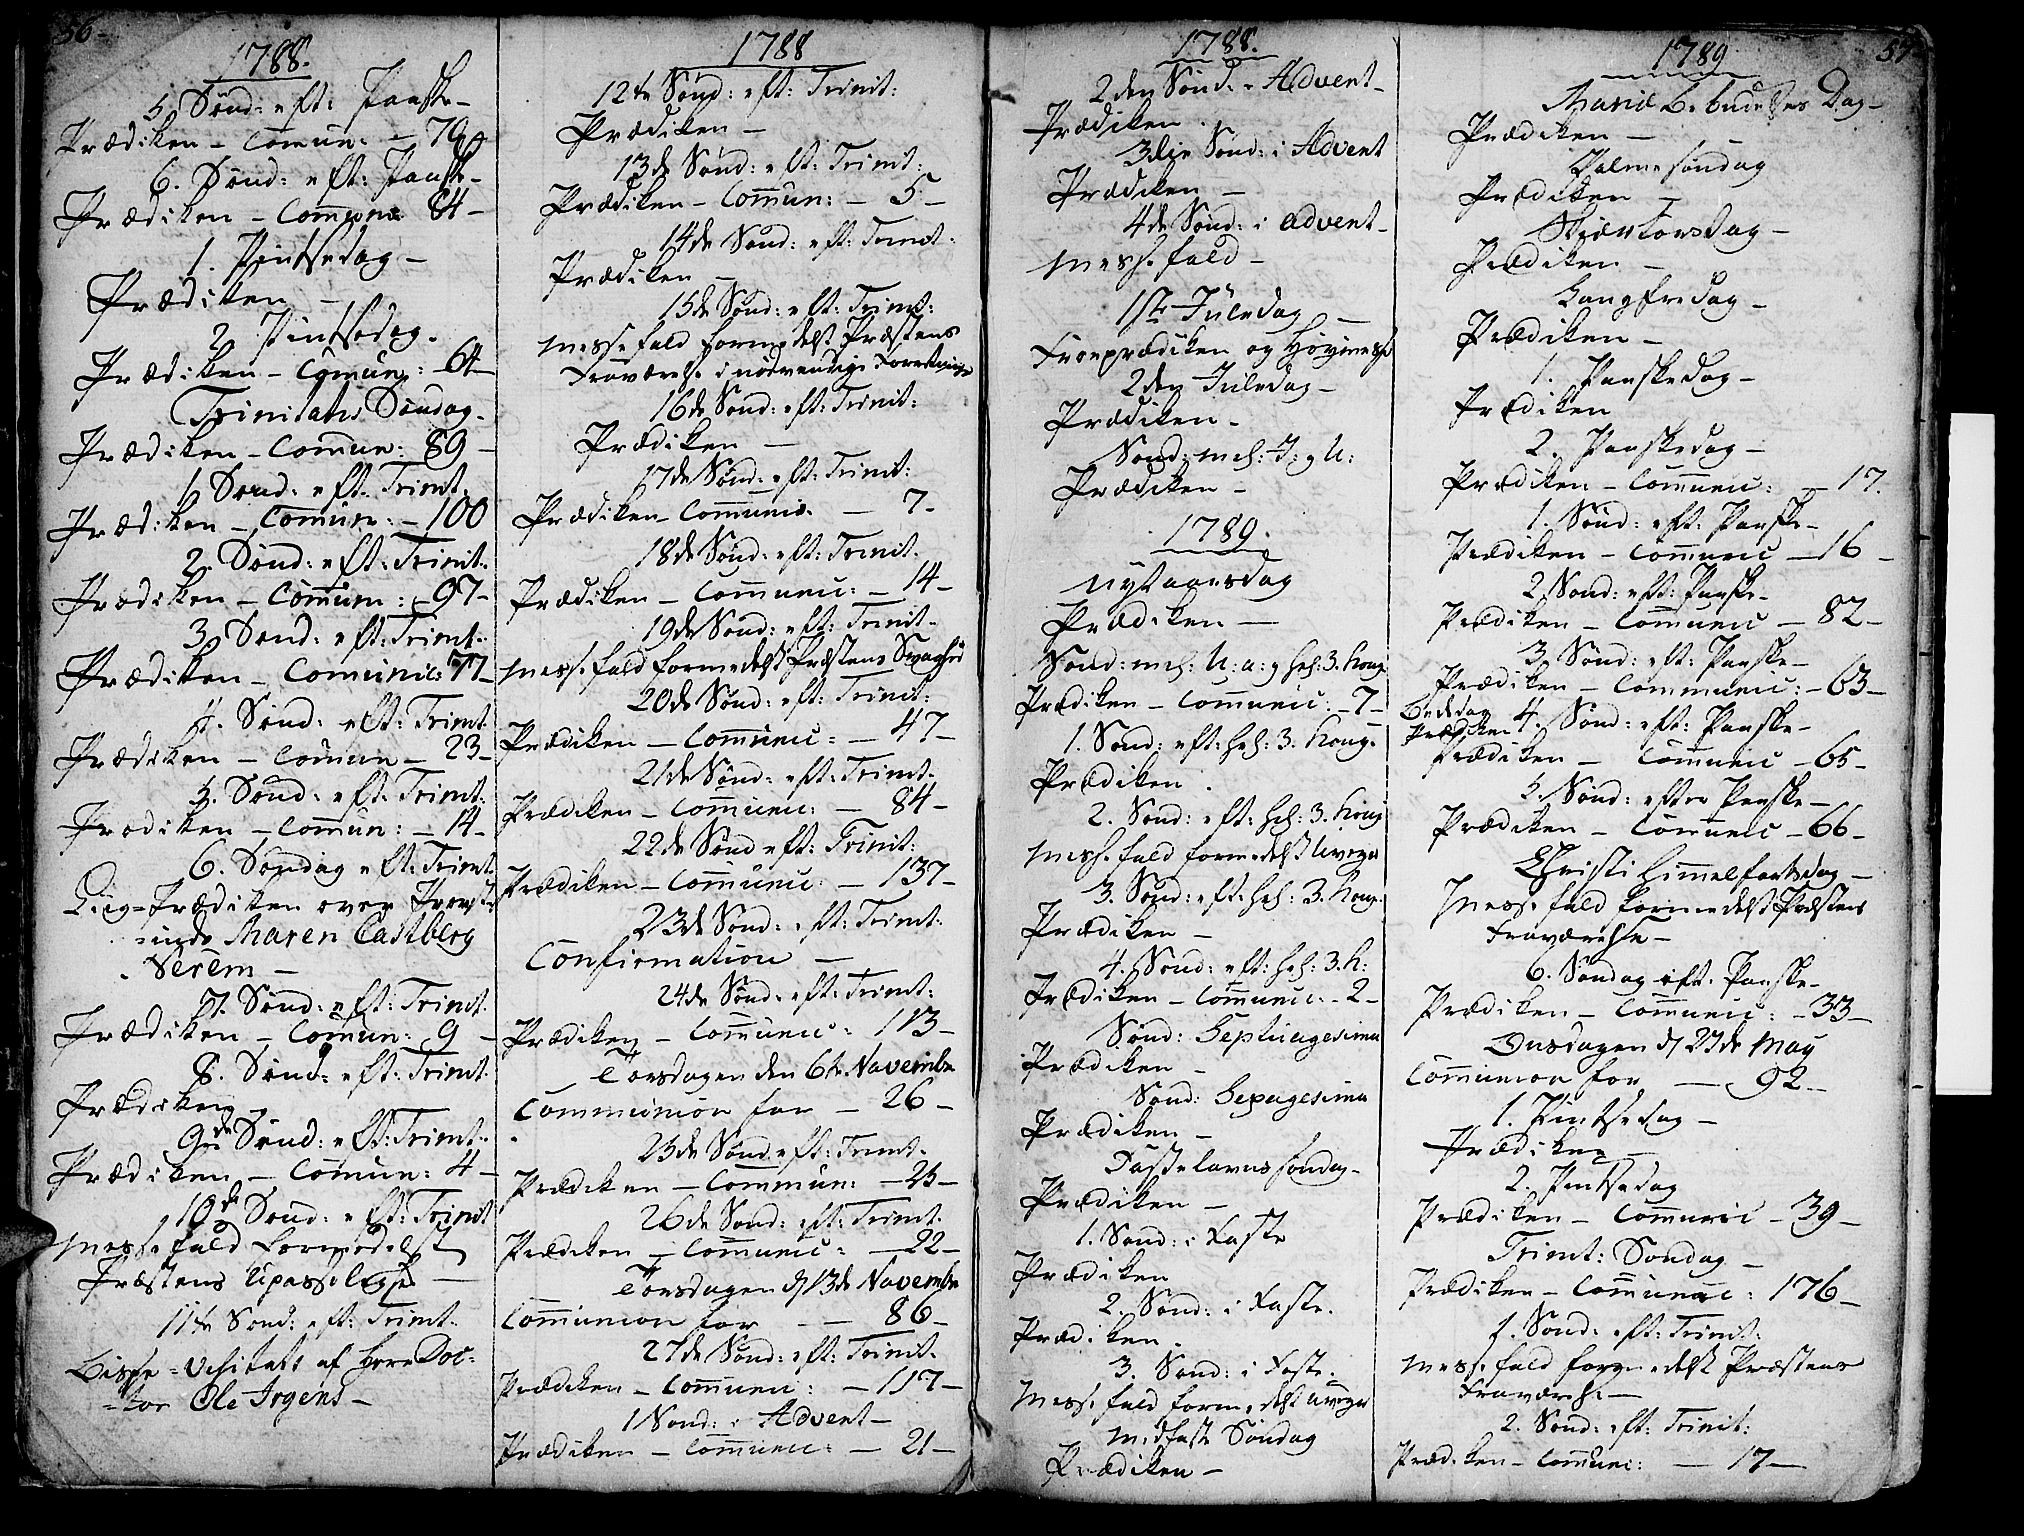 56-
1788.
5. Sønd: eft: Paaske-
Prædiken - Comun: - 70
6. Sønd: eft: Paaske-
Prædiken - Commun: 84-
1. Pintsedag-
Prædiken -
2. Pintsedag.
Prædiken - Comun: - 64-
Trinitatis Søndag-
Prædiken - Comun: 89-
1 Sønd: eft: Trinit.
Prædiken - Comun: - 100
2. Sønd: eft: Trinit:
Prædiken - Comun: - 97-
3. Sønd: eft: Trinit:
Prædiken - Comunic: 77-
4. Sønd: eft: Trinit
Prædiken - Comun - 23-
5. Sønd: eft: Trinit:
Prædiken - Comun: - 14-
6. Søndag eft: Trinit.
Liig-Prædiken over Provst-
inde Maren Castberg
Serem -
7. Sønd: eft: Trinit.
Prædiken - Comun: 9-
8. Sønd: eft: Trinit.
Prædiken -
9de Sønd: eft: Trinit:
Prædiken - Comun: 4-
10de Sønd: eft: Trinit
Messefald formedelst
Præstens Upasselighed -
11te Sønd: eft: Trinit.
Bispe-Visitats af Herr Doc-
-tor Ole Irgens-
1788
12te Sønd: eft: Trinit:
Prædiken -
13de Sønd: eft: Trinit:
Prædiken - Commun: - 5-
14de Sønd: eft: Trinit.
Prædiken -
15de Sønd: eft: Trinit:
Messefald formedelst Præstens
Fraværelse i nødvendige Forretninger
16de Sønd: eft: Trinit:
Prædiken -
17de Sønd: eft: Trinit:
Prædiken - Communic. - 7-
18de Sønd: eft: Trinit.
Prædiken - Communic: - 14-
19de Sønd: eft: Trinit-
Messefald formedelst Præstens Svaghed
20de Sønd: eft: Trinit:
Prædiken - Comunic: - 47-
21de Sønd: eft: Trinit.
Prædiken - Comunic: - 84-
22de Sønd eft: Trinit:
Prædiken - Comunic: - 137-
23de Sønd: eft: Trinit:
Confirmation -
24de Sønd: eft: Trinit:
Prædiken - Comunic: 113-
Torsdagen den 6te November
Communion for - 26-
25de Sønd eft: Trinit.
Prædiken - Commun: - 25-
26de Sønd: eft: Trinit.
Prædiken - Comunic: - 22-
Torsdagen d 13de November
Communion for - - 86-
27de Sønd: eft: Trinit.
Prædiken - Comunic: - 117-
1 Sønd: i Advent-
Prædiken - Comunic: - 21-
1788.
2den Sønd: i Advent-
Prædiken.
3die Sønd: i Advent
Prædiken -
4de Sønd: i advent-
Messefald-
1ste Juledag -
Froeprædiken og Høymesse
2den Juledag-
Prædiken-
Sønd: mel: J: og N:
Prædiken-
1789.
Nytaarsdag
Prædiken -
Sønd: mel: N: a: og hel: 3. Kong.
Prædiken - Comunic: - 7-
1. Sønd: eft: hel: 3. Kong.
Prædiken.
2. Sønd: eft: hel: 3. Kong
Messefald formedelst Uveyr
3. Sønd: eft: hel: 3. Kong.
Prædiken -
4. Sønd: eft: hel: 3. K:
Prædiken - Comunic: - 2-
Sønd: Septuagesima
Prædiken -
Sønd: Sexagesima
Prædiken -
Fastelavns søndag-
Prædiken -
1. Sønd: i Faste
Prædiken
2. Sønd: i Faste.
Prædiken.
3. Sønd: i Faste.
Messefald formedelst Uveyr
Midfaste Søndag
Prædiken -
57
1789
Mariæ Bebudelses Dag-
Prædiken -
Palmesøndag
Prædiken -
Skiærtorsdag-
Prædiken -
Langfredag-
Prædiken -
1. Paaskedag-
Prædiken
2. Paaskedag-
Prædiken - Comunic: - 17.
1. Sønd: eft: Paaske-
Prædiken - Comunic - 16-
2 Sønd: eft: Paaske-
Prædiken - Comunic - 82-
3. Sønd: eft: Paaske-
Prædiken - Communic: - 63-
Bededag
Prædiken 4. Sønd: eft: Paaske-
Prædiken - Comunic - 65-
5. Sønd: efter Paaske-
Prædiken - Comunic - 66-
Christi Himmelfartsdag -
Messefald formedelst Præstens
Fraværelse-
6. Søndag eft: Paaske-
Prædiken - Comunic: - 33-
Onsdagen d 27de May
Communion for - 92-
1. Pintsedag-
Prædiken -
2. Pintsedag
Prædiken - Comunic - 39-
Trinit: Søndag -
Prædiken - Comunic: 176-
1. Sønd: eft: Trinit:
Messefald formedelst Præstens
Fraværelse-
2. Sønd: eft: Trinit:
Prædiken - Comunic: - 17-